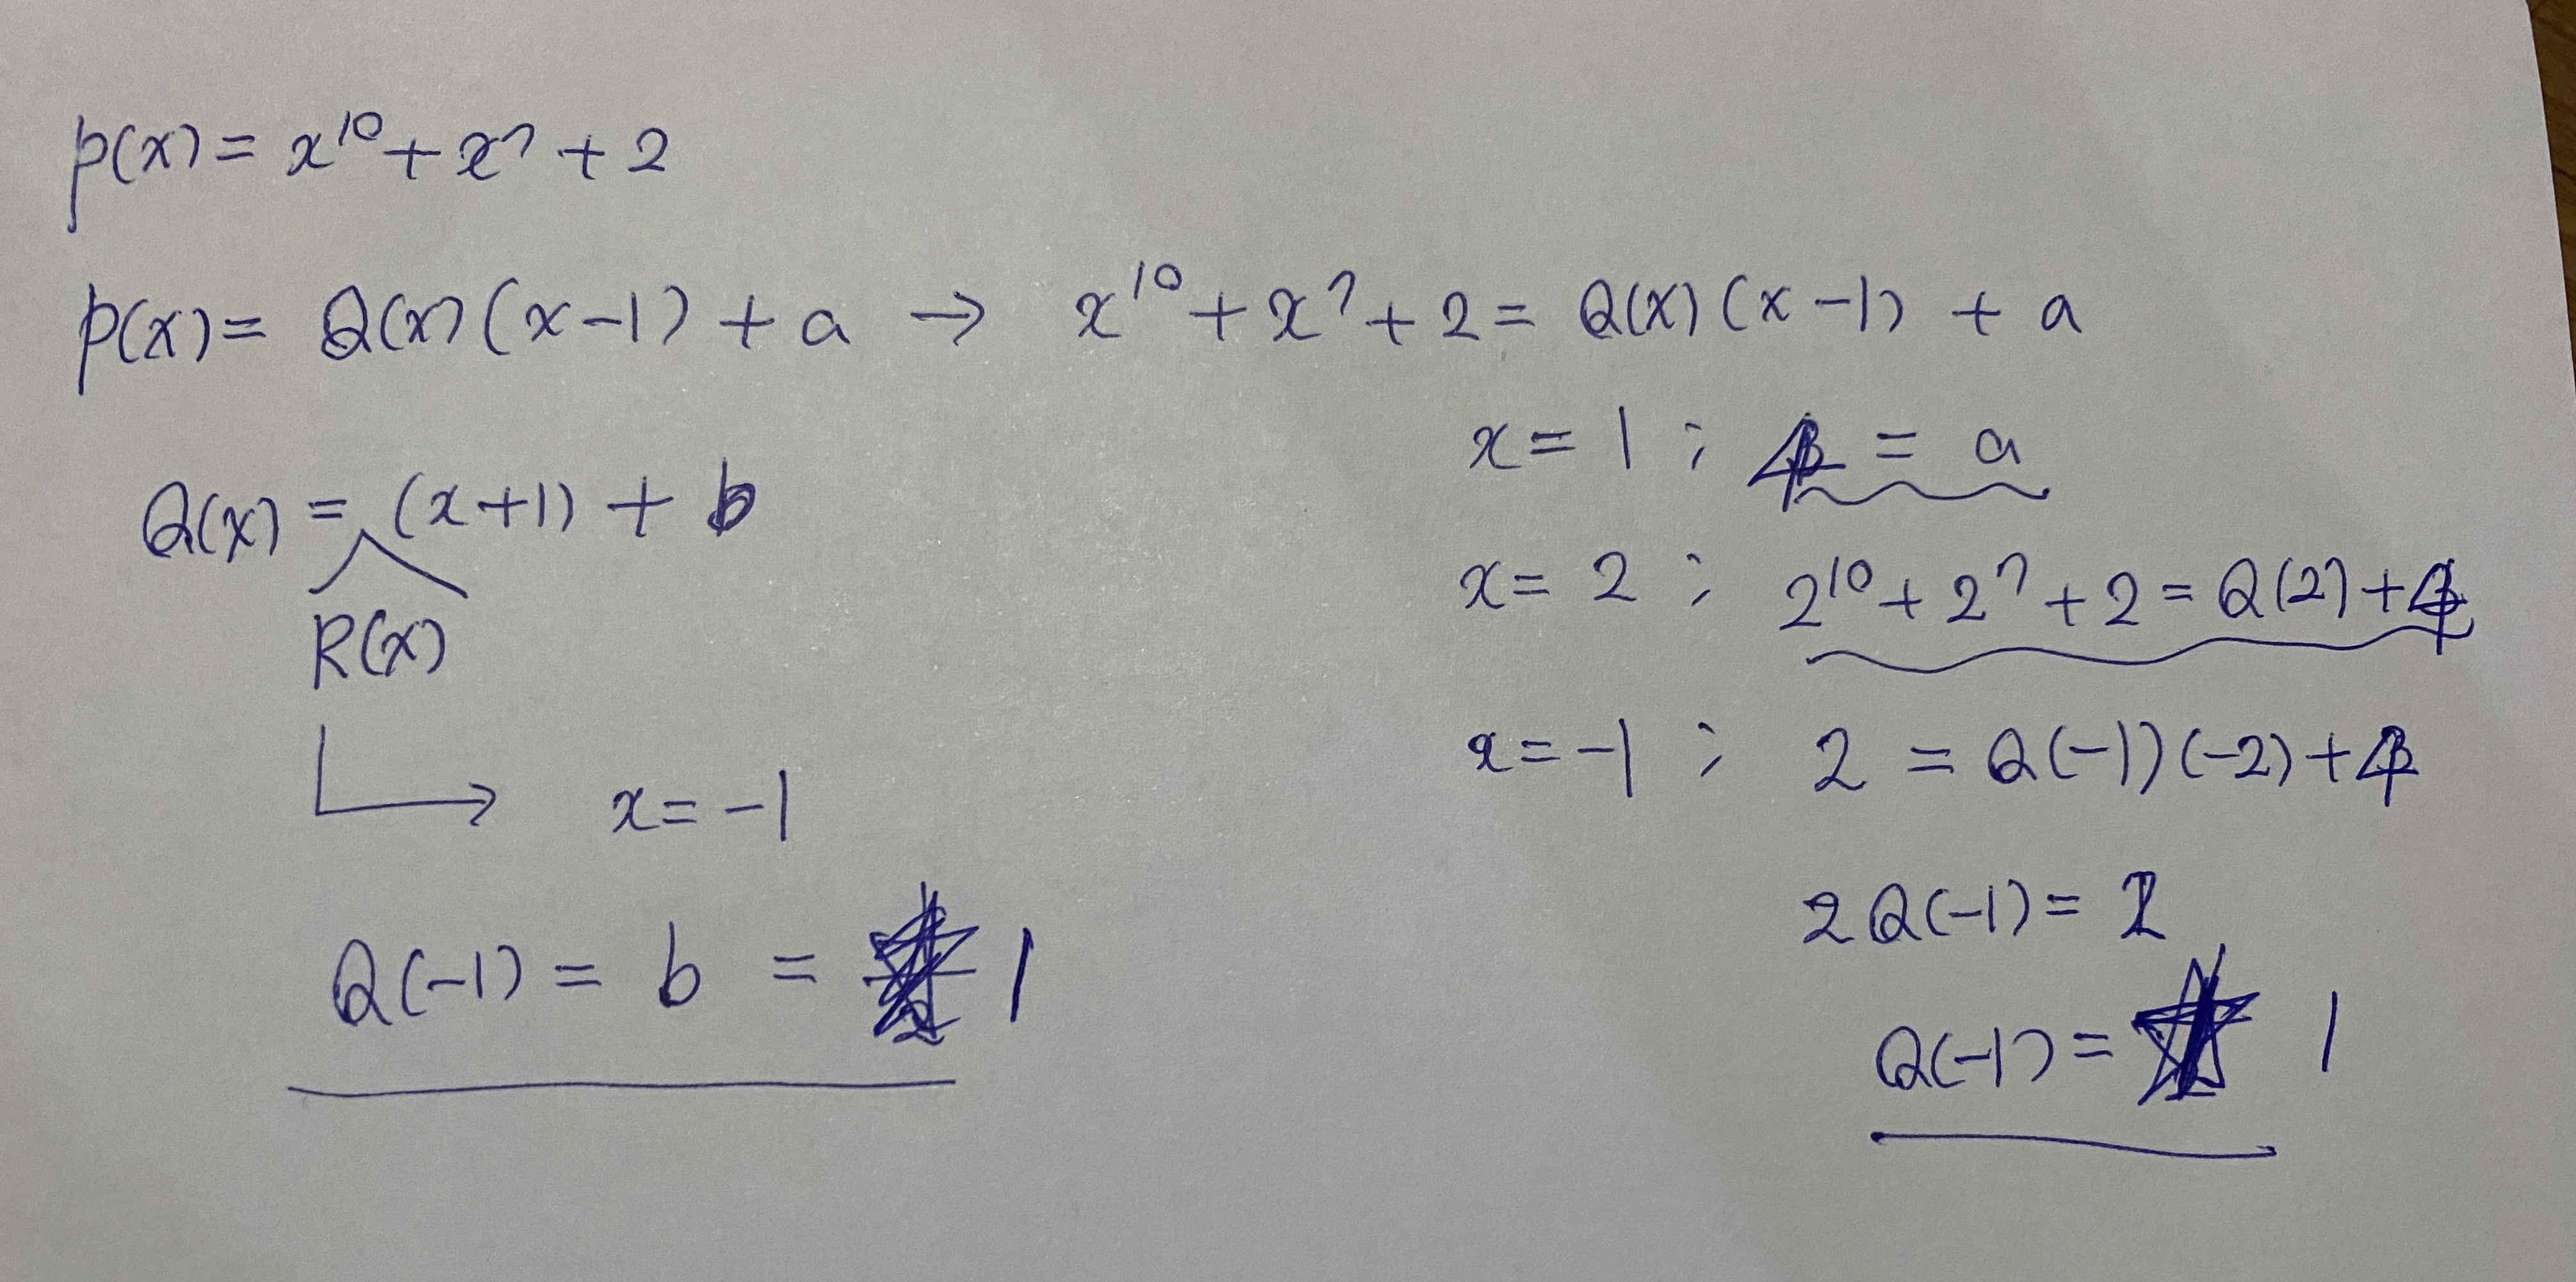 p(x) = x¹⁰ + x⁷ + 2
p(x) = Q(x)(x-1) + a → x¹⁰ + x⁷ + 2 = Q(x)(x-1) + a
x = 1 ; 4 = a
Q(x) = (x+1) + b
R(x)
x = 2 ; 2¹⁰ + 2⁷ + 2 = Q(2) + 4
x = -1 ; 2 = Q(-1)(-2) + 4
x = -1
2Q(-1) = 2
Q(-1) = b = 1
Q(-1) = 1